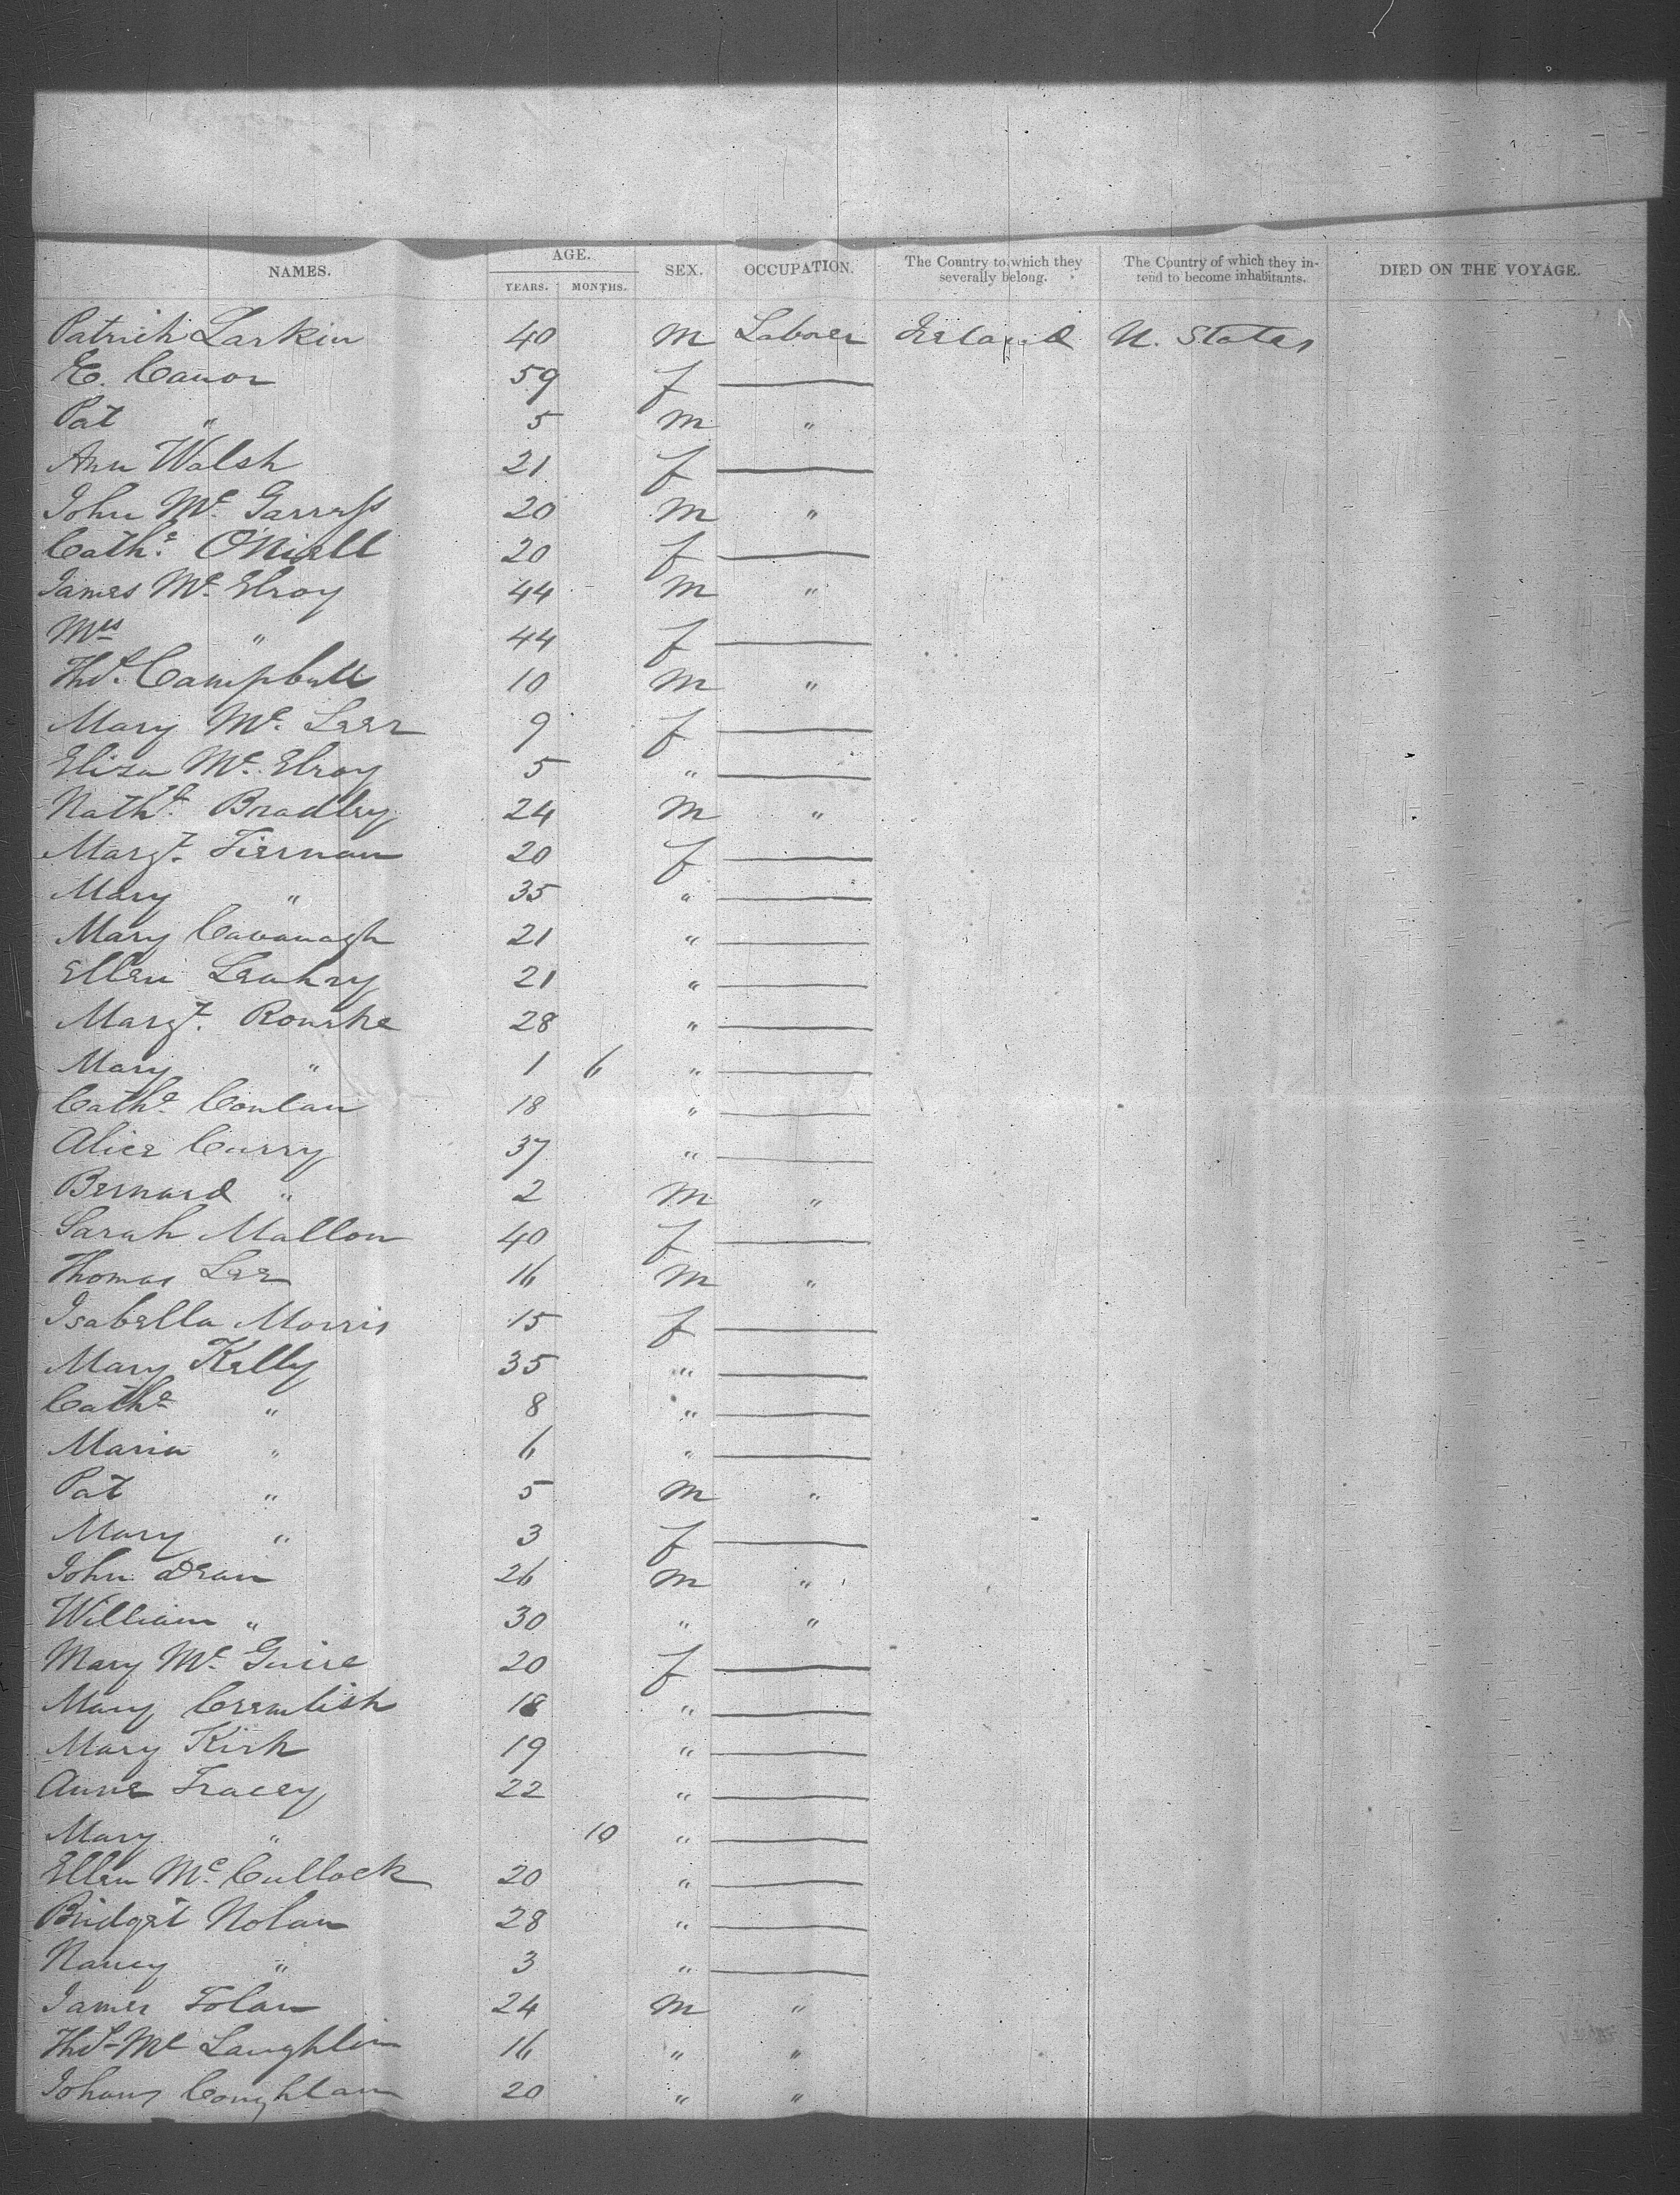 NAMES. AGE. YEARS. MONTHS. SEX. OCCUPATION. The Country to which they severally belong. The Country of which they intend to become inhabitants. DIED ON THE VOYAGE.
Patrick Larkin 40 M Laborer Ireland U. States
E. Canor 59 f ———
Pat " 5 M "
Ann Walsh 21 f ———
John Mc. 20 M "
Cathe. O'Niell 20 f ———
James Mc. Elroy 44 M "
Mrs " 44 f ———
Thos. Campbell 10 M "
Mary Mc. Leer 9 f ———
Eliza Mc. Elroy 5 " ———
Nathl. Bradley 24 M "
Margt. Tiernan 20 f ———
Mary " 35 " ———
Mary Cavanagh 21 " ———
Ellen Leahry 21 " ———
Margt. Rourke 28 " ———
Mary " 1 6 " ———
Cathe. Conlan 18 " ———
Alice Curry 37 " ———
Bernard " 2 M "
Sarah Mallon 40 f ———
Thomas Lee 16 M "
Isabella Morris 15 f ———
Mary Kelly 35 " ———
Cathe " 8 " ———
Maria " 6 " ———
Pat " 5 M "
Mary " 3 f ———
John Dean 26 M "
William " 30 " "
Mary Mc. Guire 20 f ———
Mary Cremlish 18 " ———
Mary Kirk 19 " ———
Anne Tracey 22 " ———
Mary " 10 " ———
Ellen Mc. Cullock 20 " ———
Bridget Nolan 28 " ———
Nancy " 3 " ———
James Tolan 24 M "
Thos. Mc Laughlin 16 " "
Johany Coughlan 20 " "